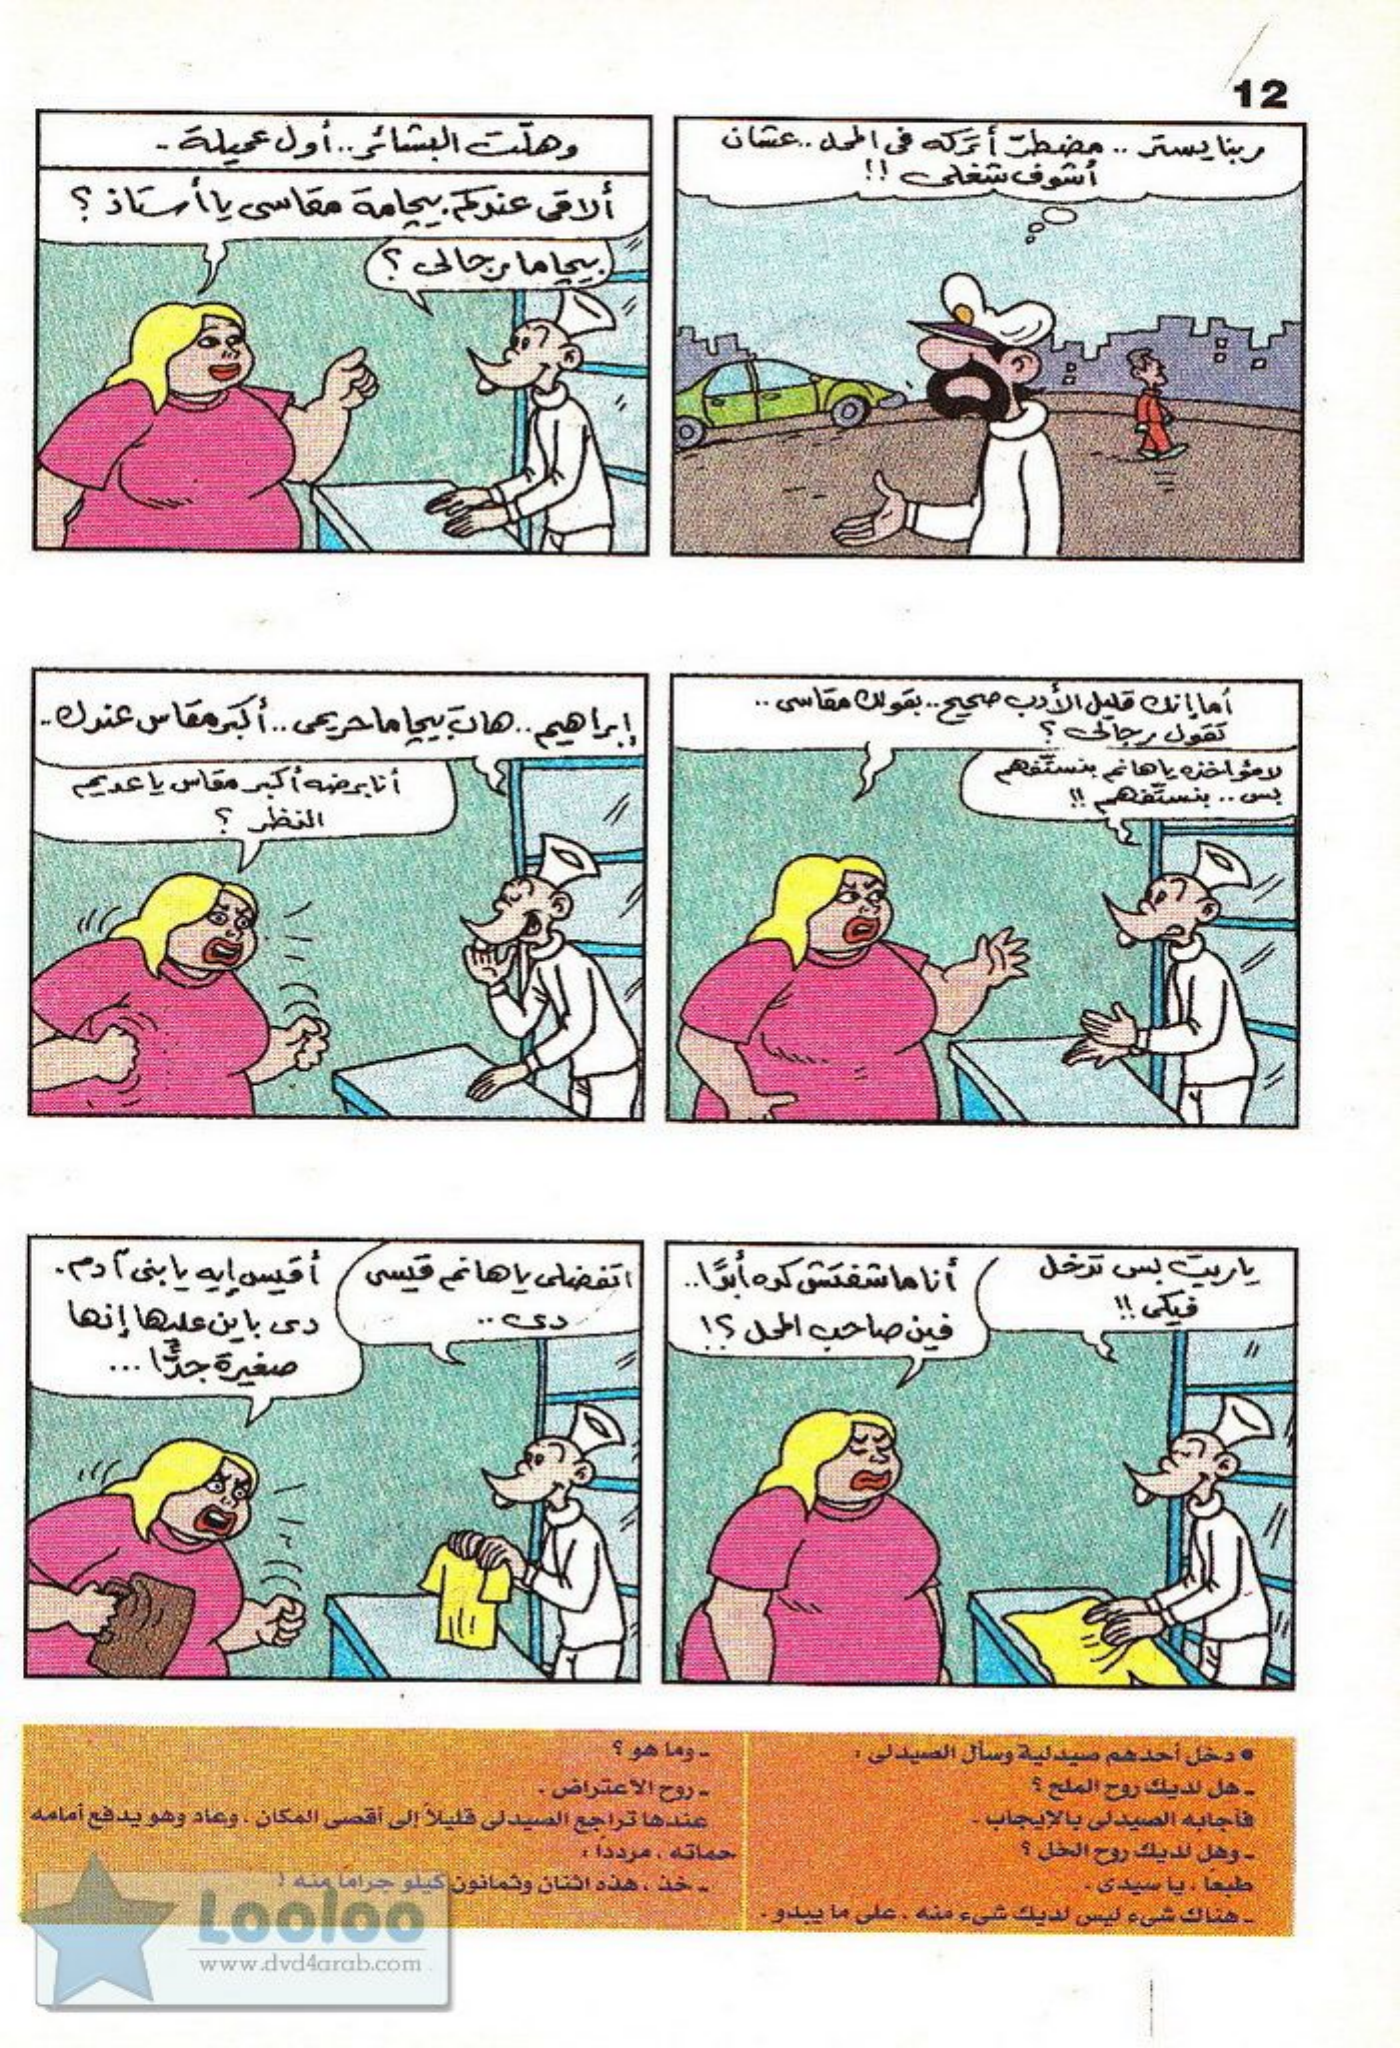 12
ربنا يستر .. مضطر أتركه فى المحل .. عشان
أشوف شغلى !!
وهلّت البشائر .. أول عميلة ..
ألاقى عندكم بيجامة مقاسى يا أستاذ ؟
بيجاما رجالى ؟
أما إنك قليل الأدب صحيح .. بقولك مقاسى ..
تقول رجالى ؟
لا مؤاخذه يا هانم بنستفهم
بس .. بنستفهم !!
إبراهيم .. هات بيجاما حريمى .. أكبر مقاس عندك ..
أنا برضه أكبر مقاس يا عديم
النظر ؟
ياريت بس تدخل
فيكى !!
أنا ماشفتش كده أبدًا ..
فين صاحب المحل ؟!
اتفضلى يا هانم قيسى
دى ..
أقيس إيه يا بنى آدم .
دى باين عليها إنها
صغيرة جدًّا ...
• دخل أحدهم صيدلية وسأل الصيدلى :
ـ هل لديك روح الملح ؟
فأجابه الصيدلى بالإيجاب .
ـ وهل لديك روح الخل ؟
طبعًا ، يا سيدى .
ـ هناك شىء ليس لديك شىء منه ، على ما يبدو .
ـ وما هو ؟
ـ روح الاعتراض .
عندها تراجع الصيدلى قليلاً إلى أقصى المكان ، وعاد وهو يدفع أمامه
حماته ، مرددًا :
ـ خذ ، هذه اثنان وثمانون كيلو جرامًا منه !
Looloo
www.dvd4arab.com